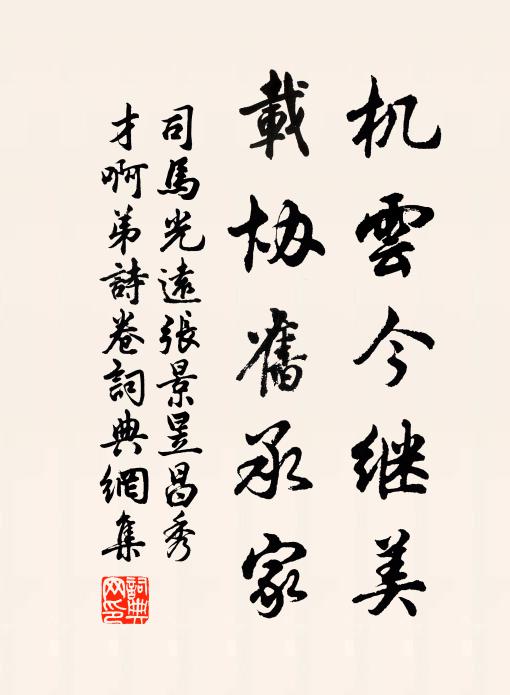 机雲今继美
載协舊承家
司馬光遠張景昱昌秀
才啊弟詩卷詞典網集
詞典網印